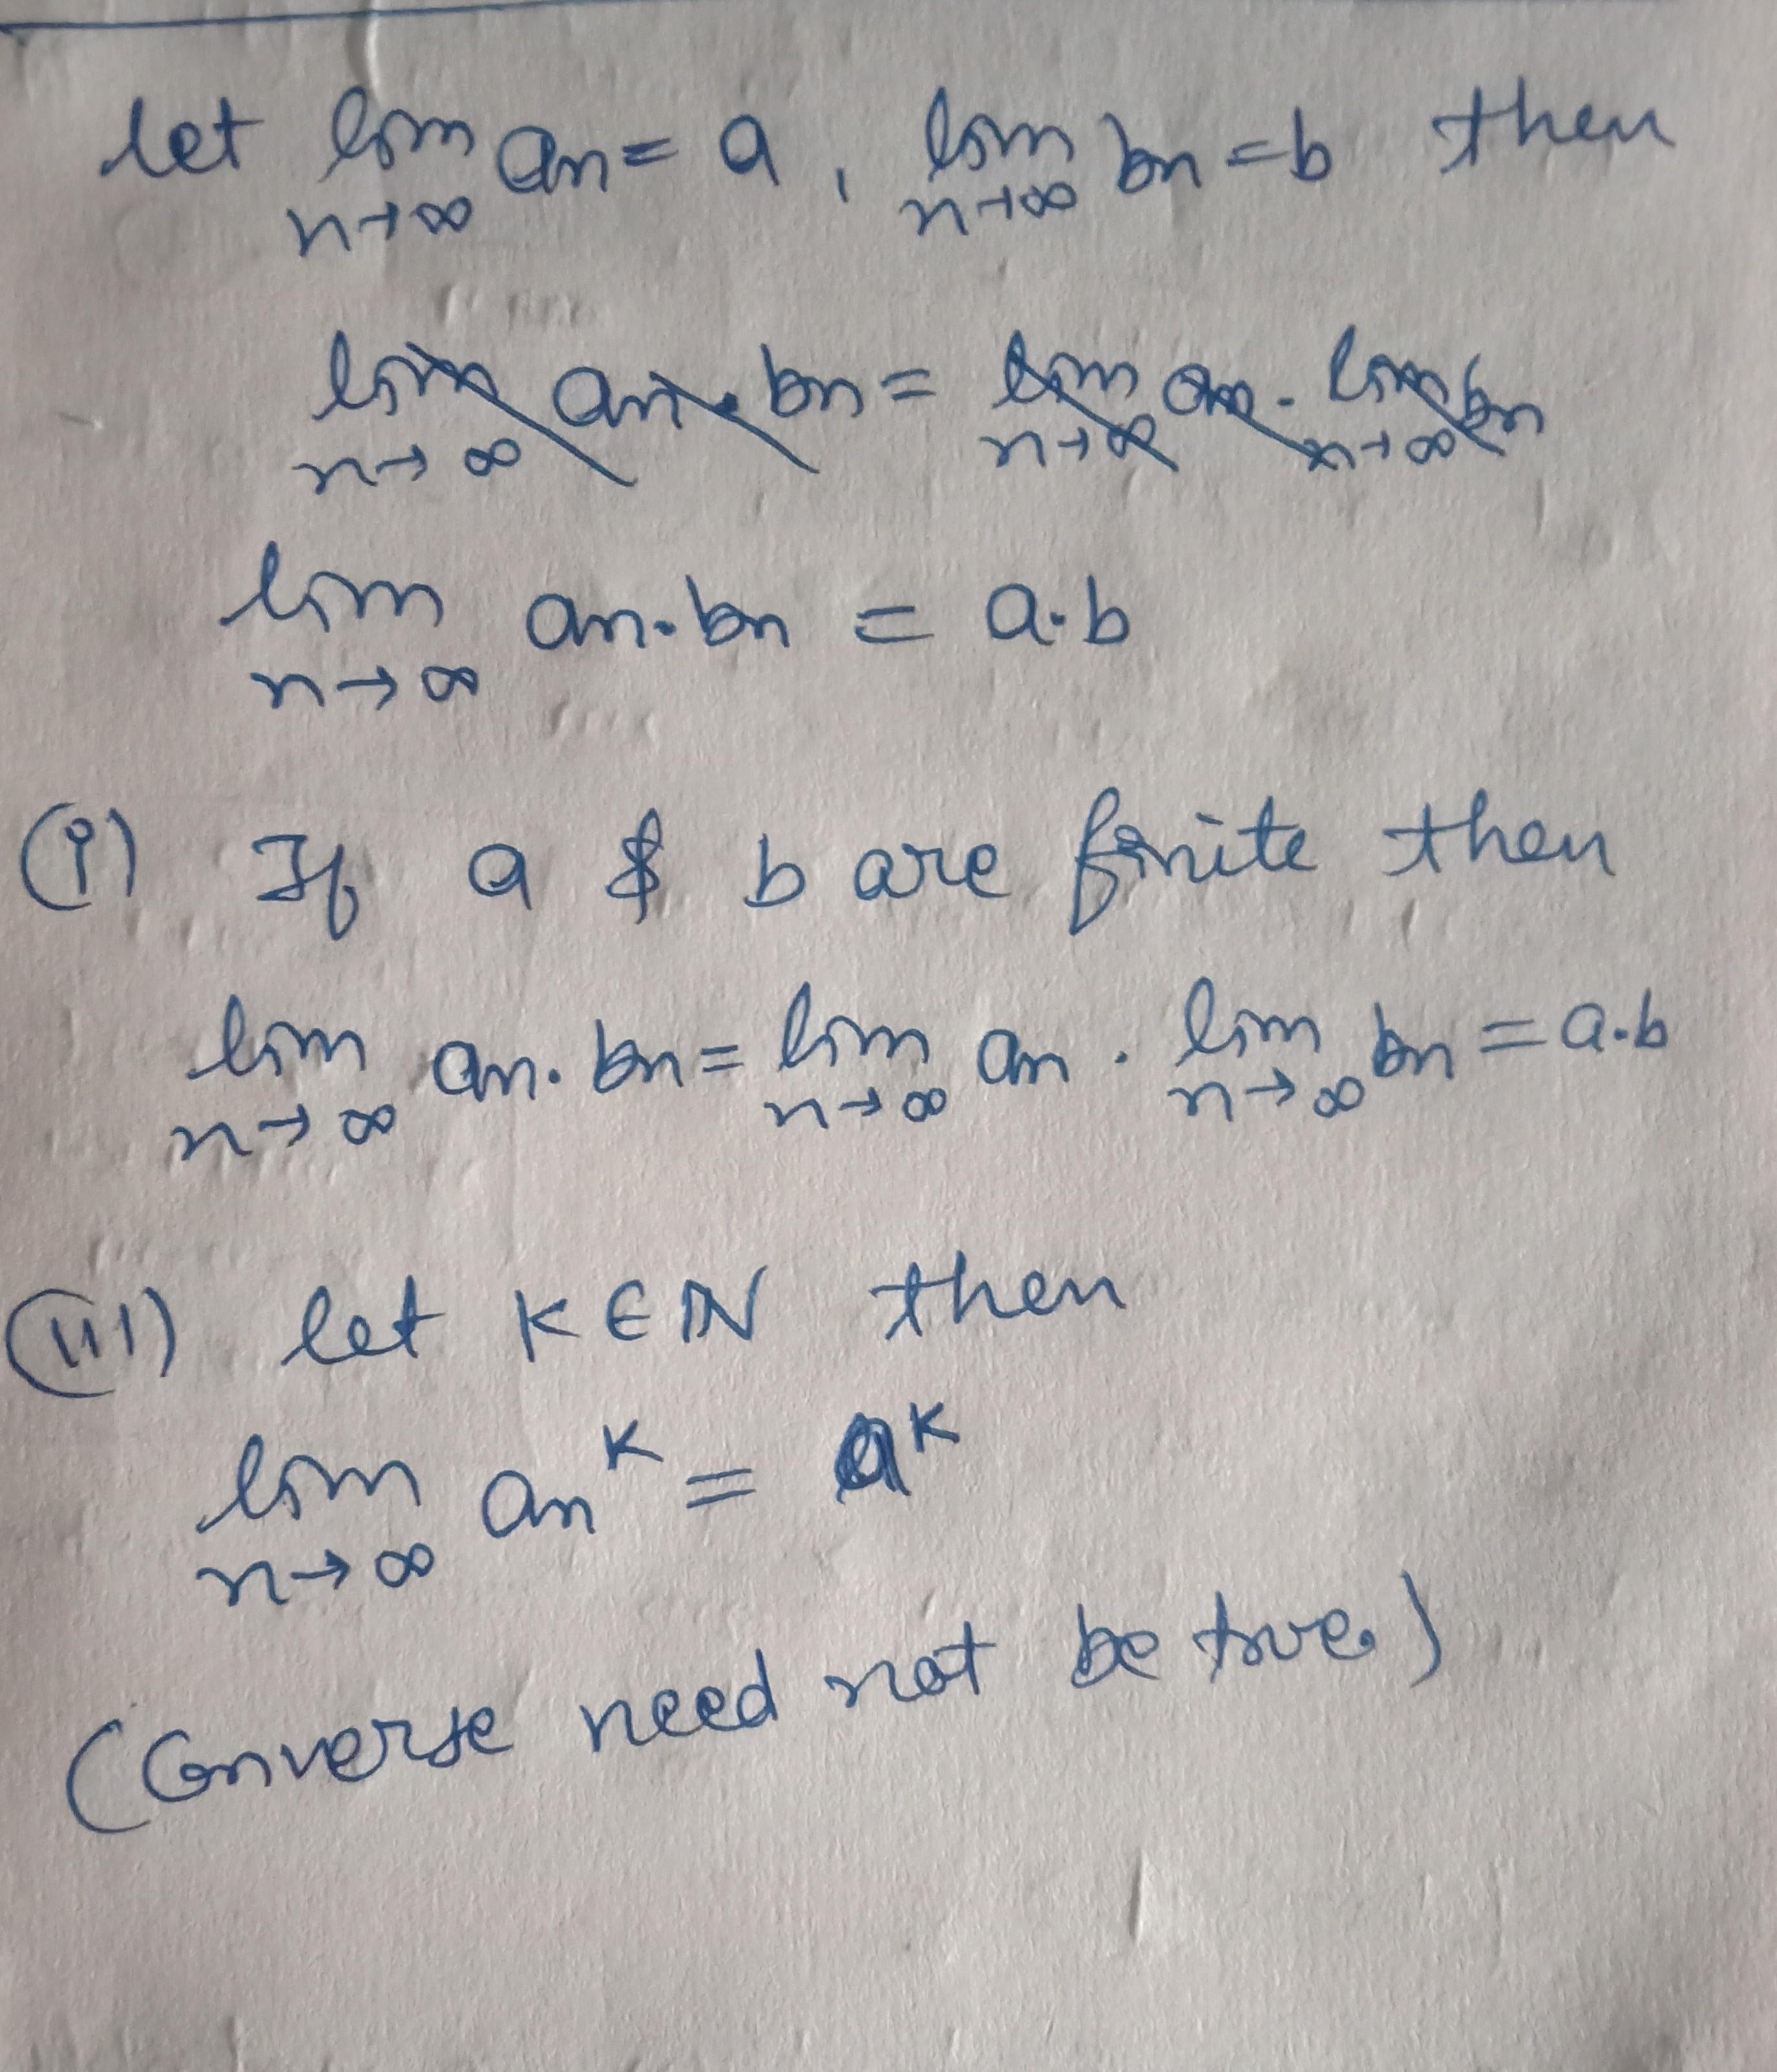 let lim an = a, lim bn = b then
n→∞ n→∞
lim an · bn = lim an · lim bn
n→∞ n→∞ n→∞
lim an · bn = a · b
n→∞
(i) If a & b are finite then
lim an · bn = lim an · lim bn = a · b
n→∞ n→∞ n→∞
(iii) let K ∈ ℕ then
lim an^K = a^K
n→∞
(Converse need not be true)